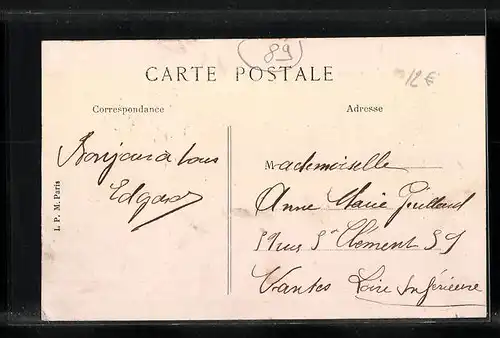 (89)
12€
CARTE POSTALE
Correspondance
Adresse
Bonjour à tous
Edgard
Mademoiselle
Anne Marie
rue St Clément
Nantes Loire Inférieure
I. P. M. Paris